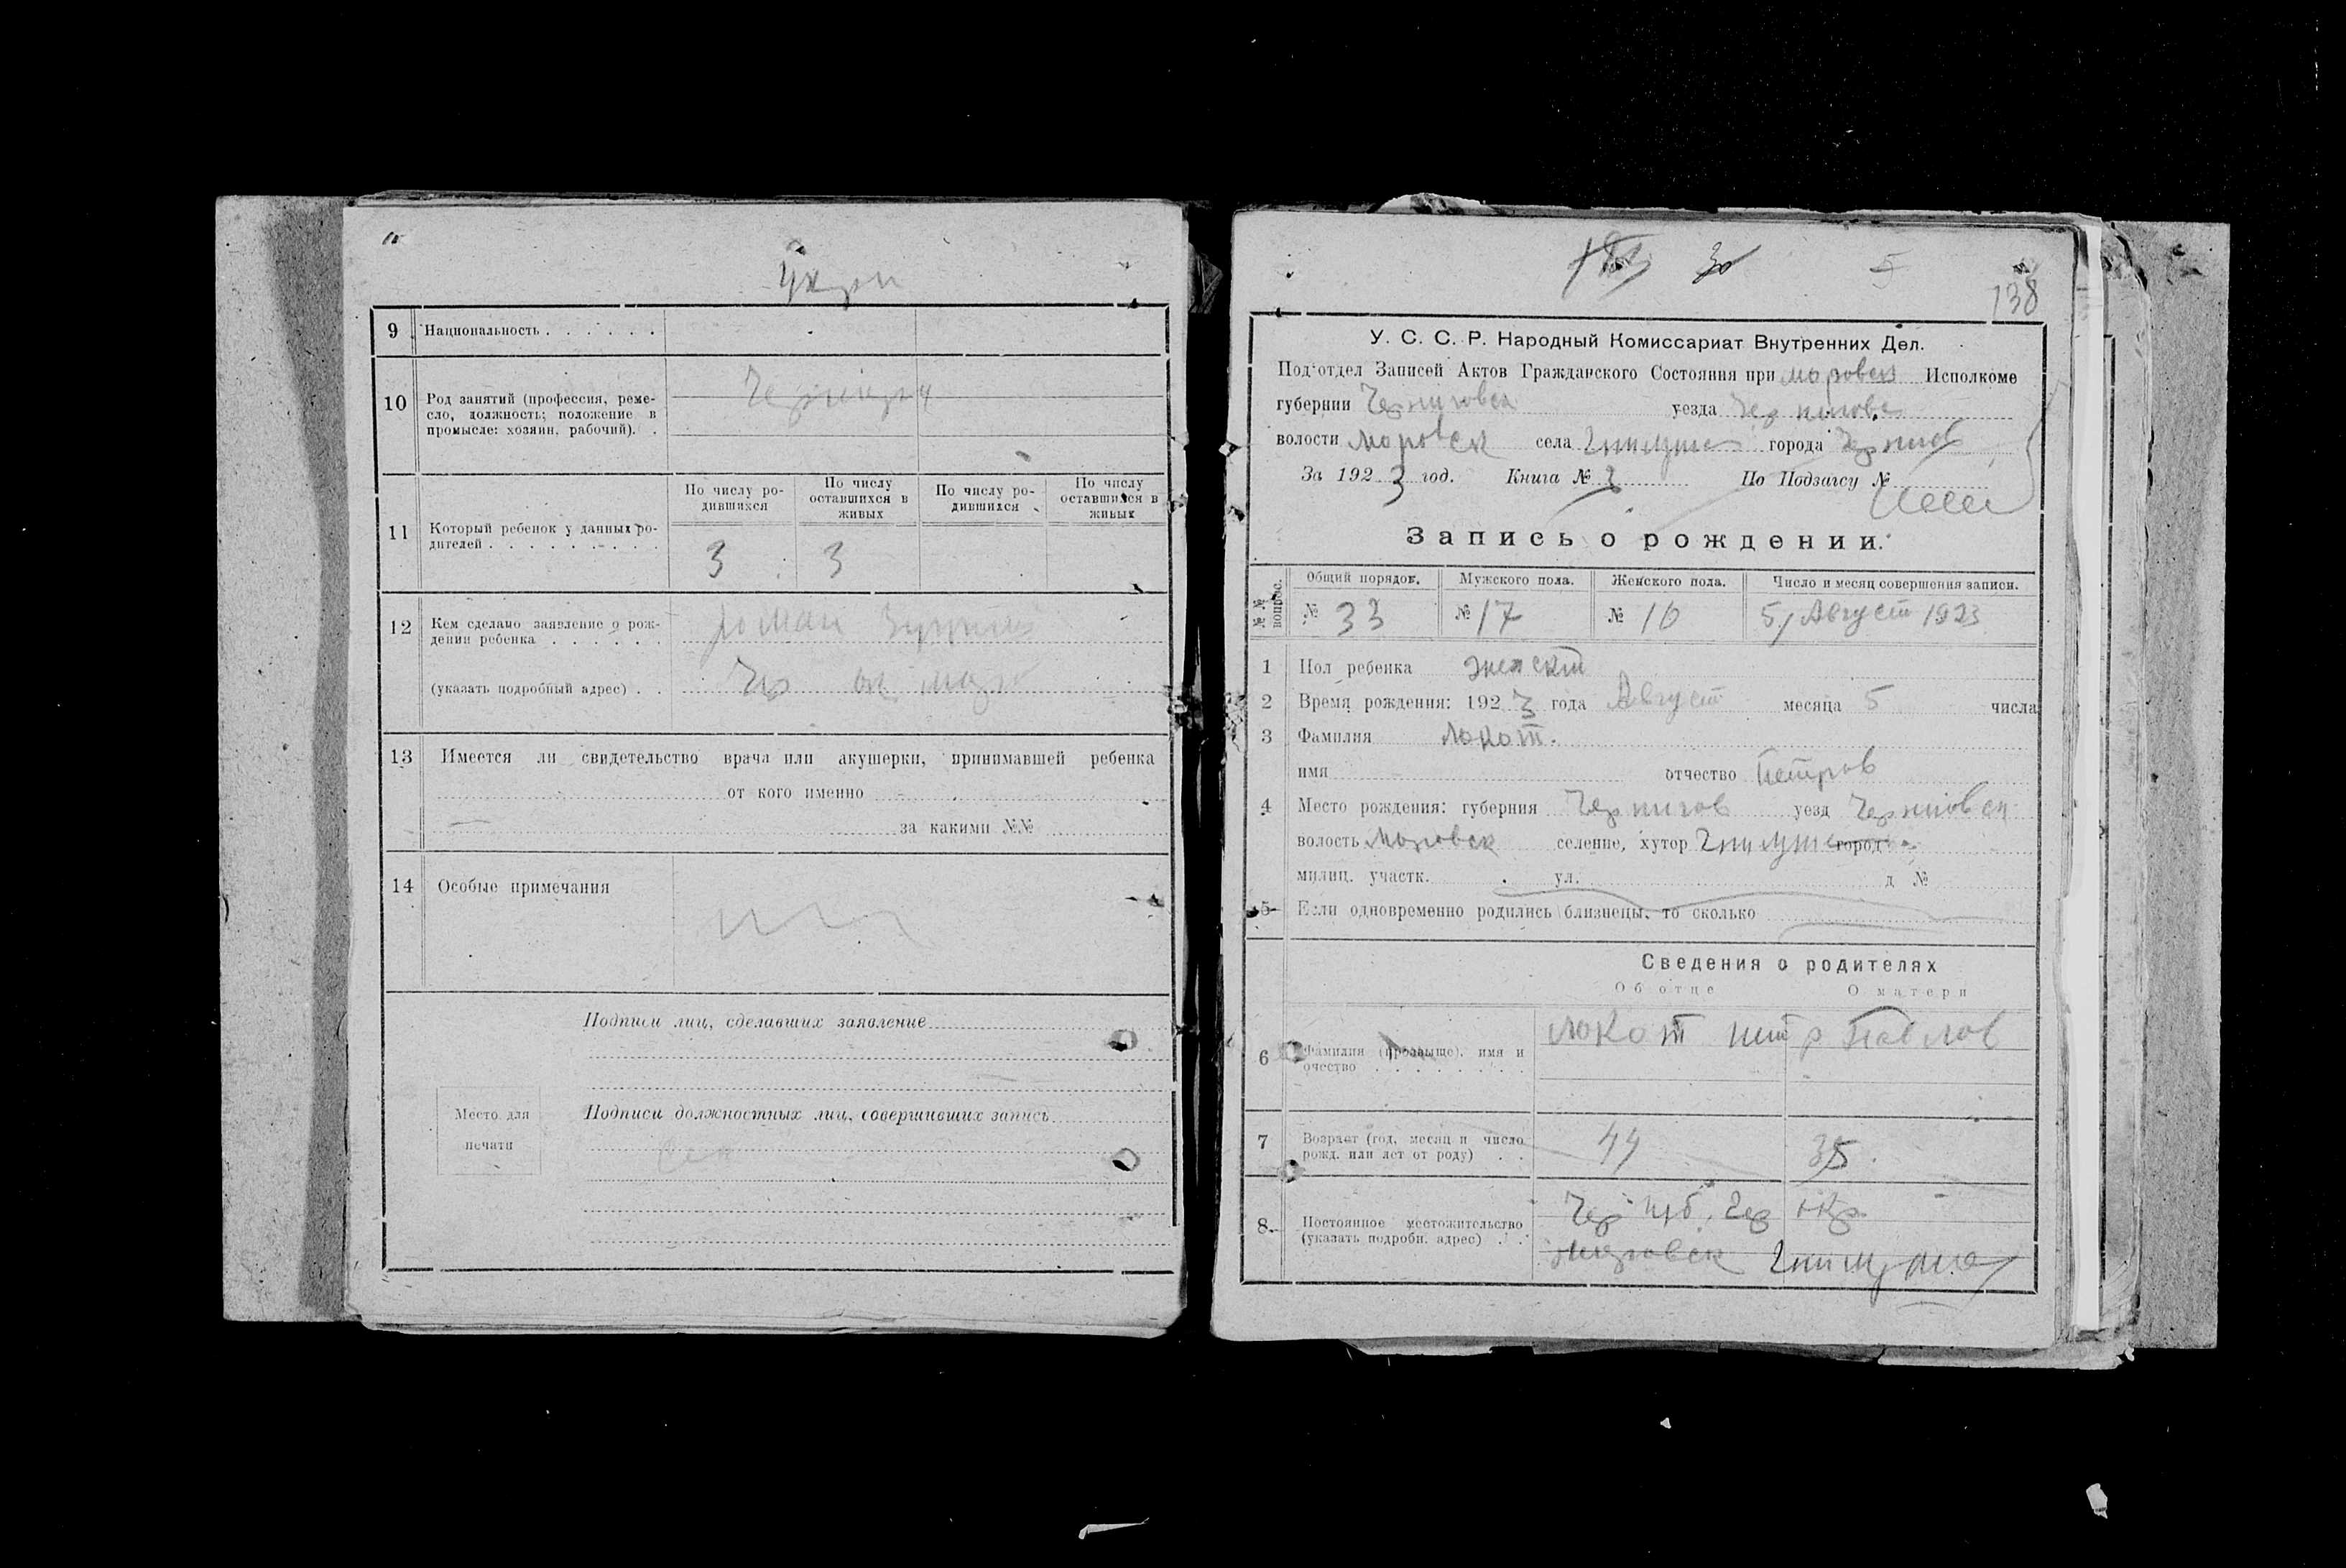 Укри
9 Национальность . . . . . .
10 Род занятий (профессия, реме-
сло, должность; положение в
промысле: хозяин, рабочий). .
11 Который ребенок у данных ро-
дителей . . . . . . . . . .
По числу ро-
дившихся
По числу
оставшихся в
живых
По числу ро-
дившихся
По числу
оставшихся в
живых
3 3
12 Кем сделано заявление о рож-
дении ребенка . . . . . .
Роман
(указать подробный адрес) . .
13 Имеется ли свидетельство врача или акушерки, принимавшей ребенка
от кого именно
за какими №№
14 Особые примечания
Подписи лиц, сделавших заявление
Место для
печати
Подписи должностных лиц, совершивших запись
30 5
138
У. С. С. Р. Народный Комиссариат Внутренних Дел.
Под'отдел Записей Актов Гражданского Состояния при моровск Исполкоме
губернии Черниговск уезда Чернигове
волости Моровск села города Чернигов
За 1923 год. Книга № 2 По Подзагсу №
Запись о рождении.
№№ вопрос.
Общий порядок. Мужского пола. Женского пола. Число и месяц совершения записи.
№ 33 № 17 № 16 5, Август 1923
1 Пол ребенка женскт
2 Время рождения: 1923 года Август месяца 5 числа
3 Фамилия Локот.
имя отчество Петров
4 Место рождения: губерния Чернигов уезд Черниговск
волость Моровск селение, хутор город
милиц. участк. ул. д №
5 Если одновременно родились близнецы, то сколько
Сведения о родителях
Об отце О матери
6 Фамилия (прозвыще), имя и
очество . . . . . . . . .
Локот Петр Павлов
7 Возраст (год, месяц и число
рожд. или лет от роду) . .
44 35
8 Постоянное местожительство
(указать подробн. адрес) . .
Чер губ. Чер окр